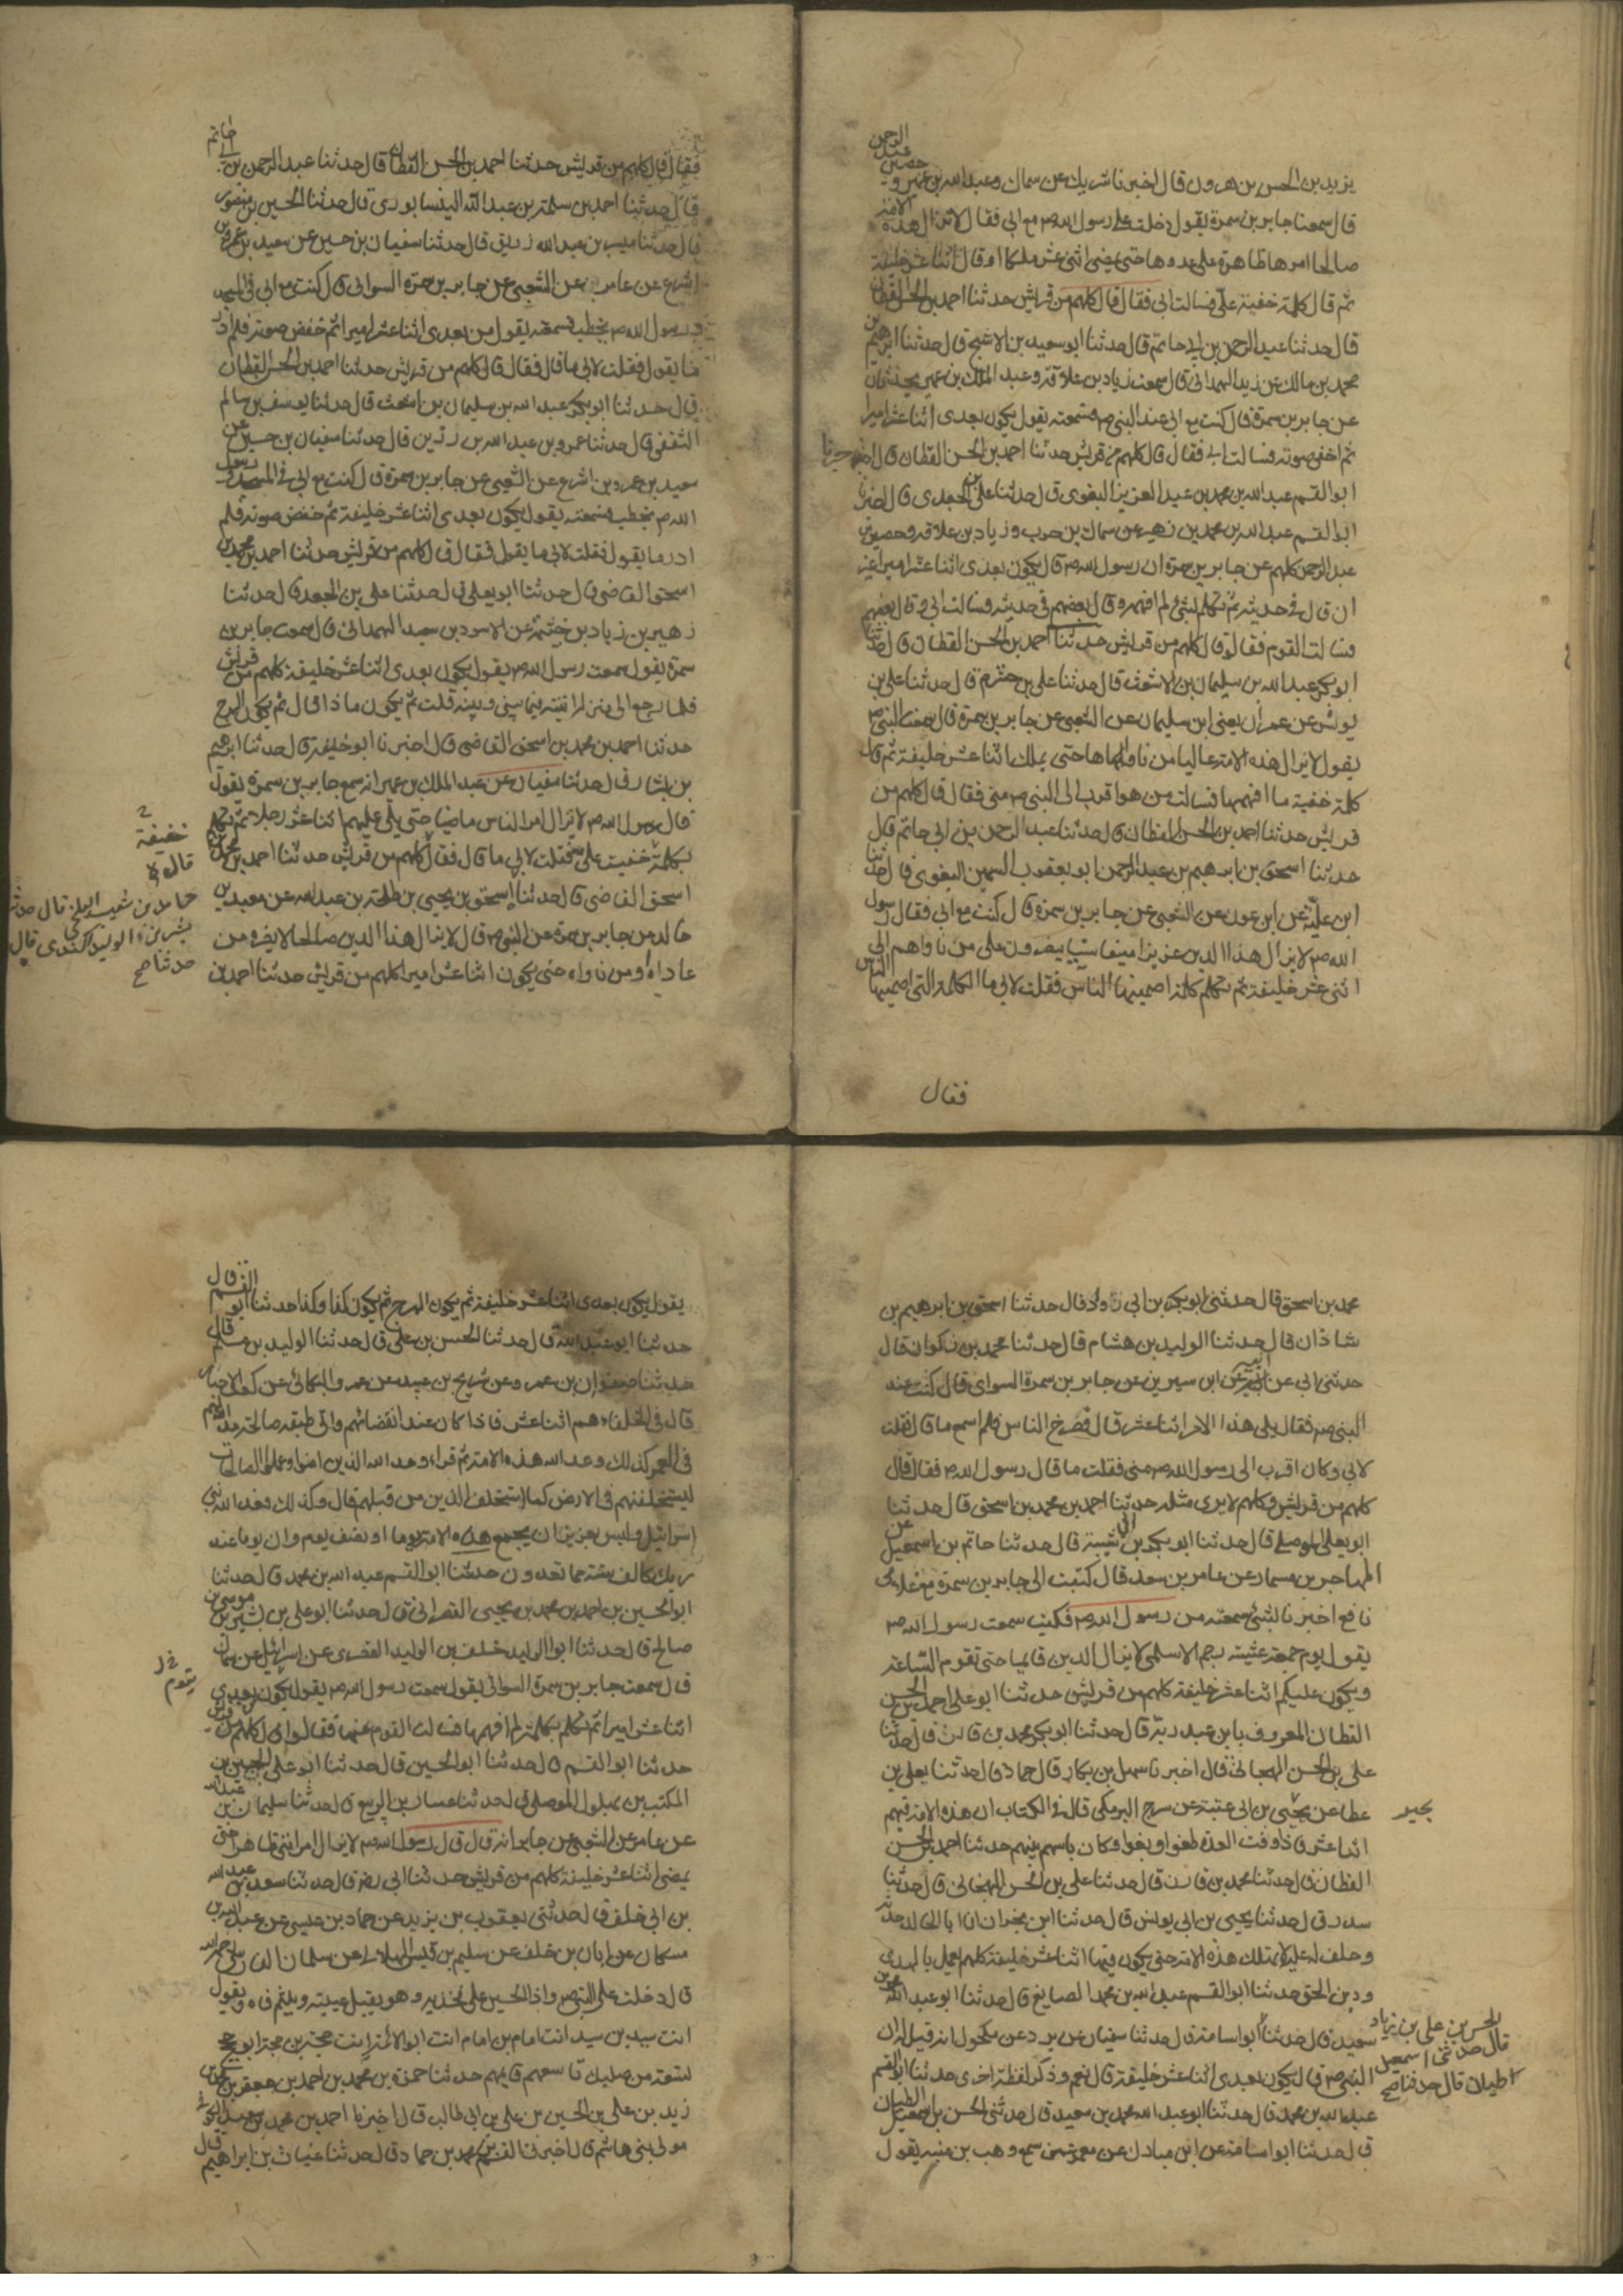 يزيد بن الحسن بن هرون قال اخبرنا شريك عن سماك وعبد الله بن عمير و
حصين
عبد
الرحمن
قال سمعنا جابر بن سمرة يقول دخلت على رسول الله ص مع ابي فقال لا تزال هذه
الامة
صالحا امرها ظاهرة على عدوها حتى يمضي اثنى عشر ملكا او قال اثنا عشر خليفة
ثم قال كلمة خفية علي فسالت ابي فقال قال كلهم من قريش حدثنا احمد بن الحسن القطان
قال حدثنا عبد الرحمن بن ابي حاتم قال حدثنا ابو سعيد بن الاشج قال حدثنا ابرهيم بن
محمد بن مالك بن زيد الهمداني قال سمعت زياد بن علاقة وعبد الملك بن عمير يحدثان
عن جابر بن سمرة قال كنت مع ابي عند النبي ص فسمعته يقول يكون بعدي اثنا عشر اميرا
ثم اخفى صوته فسالت ابي فقال قال كلهم من قريش حدثنا احمد بن الحسن القطان قال اخبرنا
ابو القسم عبد الله بن محمد بن عبد العزيز البغوي قال حدثنا علي بن الجعدي قال اخبرنا
ابو القسم عبد الله بن محمد بن زهير عن سماك بن حرب وزياد بن علاقه وحصين بن
عبد الرحمن كلهم عن جابر بن سمرة ان رسول الله ص قال يكون بعدي اثنا عشر اميرا غير
ان قال في حديثه ثم تكلم بشئ لم افهمه وقال بعضهم في حديثه فسالت ابي وقال بعضهم
فسالت القوم فقالوا قال كلهم من قريش حدثنا احمد بن الحسن القطان قال حدثنا
ابو بكر عبد الله بن سليمان بن الاشعث قال حدثنا علي بن خشرم قال حدثنا علي بن
يونس عن عمران يعني ابن سليمان عن الشعبي عن جابر بن سمرة قال سمعت النبي ص
يقول لا يزال هذه الامة عاليا من ناواها حتى يملك اثنا عشر خليفة ثم قال
كلمة خفية ما افهمها فسالت من هو اقرب الى النبي ص مني فقال قال كلهم من
قريش حدثنا احمد بن الحسن القطان قال حدثنا عبد الرحمن بن ابي حاتم قال
حدثنا اسحق بن ابرهيم بن عبد الرحمن ابو يعقوب السمين البغوي قال حدثنا
ابن علية عن ابن عون عن الشعبي عن جابر بن سمرة قال كنت مع ابي فقال رسول
الله ص لا يزال هذا الدين عزيزا منيعا ينصرون على من ناواهم الى
اثني عشر خليفة ثم تكلم كلمة اصمنيها الناس فقلت لابي ما الكلمة التي اصمنيها
الناس
فقال
فقال قال كلهم من قريش حدثنا احمد بن الحسن القطان قال حدثنا عبد الرحمن بن
ابي حاتم
قال حدثنا احمد بن سلمة بن عبد الله النيسابوري قال حدثنا الحسين بن منصور
قال حدثنا مبشر بن عبد الله زريق قال حدثنا سفيان بن حسين عن سعيد بن عمرو بن
اشوع عن عامر عن الشعبي عن جابر بن سمرة السوائي قال كنت مع ابي في المسجد
ورسول الله ص يخطب فسمعته يقول من بعدي اثنا عشر اميرا ثم خفض صوته فلم ادر
ما يقول فقلت لابي ما قال فقال قال كلهم من قريش حدثنا احمد بن الحسن القطان
قال حدثنا ابو بكر عبد الله بن سليمان بن اشعث قال حدثنا يوسف بن سالم
الثقفي قال حدثنا عمرو بن عبد الله بن رزين قال حدثنا سفيان بن حسين عن
سعيد بن عمرو بن اشوع عن الشعبي عن جابر بن سمرة قال كنت مع ابي في المسجد ورسول
الله ص يخطب فسمعته يقول يكون بعدي اثنا عشر خليفة ثم خفض صوته فلم
ادر ما يقول فقلت لابي ما يقول فقال قال كلهم من قريش حدثنا احمد بن محمد بن
اسحق القاضي قال حدثنا ابو يعلى قال حدثنا علي بن الجعد قال حدثنا
زهير بن زياد بن خيثمة عن الاسود بن سعيد الهمداني قال سمعت جابر بن
سمرة يقول سمعت رسول الله ص يقول يكون بعدي اثنا عشر خليفة كلهم من قريش
فلما رجع الى منزله اتيته فيما بيني وبينه قلت ثم يكون ماذا قال ثم يكون الهرج
حدثنا احمد بن محمد بن اسحق القاضي قال اخبرنا ابو خليفة قال حدثنا ابرهيم
بن بشار قال حدثنا سفيان عن عبد الملك بن عمير انه سمع جابر بن سمرة يقول
قال رسول الله ص لا يزال امر الناس ماضيا حتى يلي عليهم اثنا عشر رجلا ثم تكلم
بكلمة خفيت علي فقلت لابي ما قال فقال كلهم من قريش حدثنا احمد بن محمد بن
اسحق القاضي قال حدثنا اسحق بن يحيى بن طلحة بن عبد الله عن معبد بن
خالد عن جابر بن سمرة عن النبي ص قال لا يزال هذا الدين صالحا لا يضره من
عاداه او من ناواه حتى يكون اثنا عشر اميرا كلهم من قريش حدثنا احمد بن
خفيفة
قال
حامد بن شعيب البلخي قال حدثنا
بشر بن الوليد الكندي قال
حدثنا صح
محمد بن اسحق قال حدثني ابو بكر بن ابي داود قال حدثنا اسحق بن ابرهيم بن
شاذان قال حدثنا الوليد بن هشام قال حدثنا محمد بن ذكوان قال
حدثني ابي عن ابيه عن ابن سيرين عن جابر بن سمرة السوائي قال كنت عند
النبي ص فقال يلي هذا الامر اثنا عشر قال فصرخ الناس فلم اسمع ما قال فقلت
لابي وكان اقرب الى رسول الله ص مني فقلت ما قال رسول الله ص فقال قال
كلهم من قريش وكلهم لا يرى مثله حدثنا احمد بن محمد بن اسحق قال حدثنا
ابو يعلى الموصلي قال حدثنا ابو بكر بن ابي شيبة قال حدثنا حاتم بن اسمعيل عن
المهاجر بن مسمار عن عامر بن سعد قال كتبت الى جابر بن سمرة مع غلامي
نافع اخبرنا بشئ سمعته من رسول الله ص فكتب سمعت رسول الله ص
يقول يوم جمعة عشية رجم الاسلمي لا يزال الدين قائما حتى تقوم الساعة
ويكون عليكم اثنا عشر خليفة كلهم من قريش حدثنا ابو علي احمد بن الحسن
القطان المعروف بابن عبد ربه قال حدثنا ابو بكر محمد بن قارن قال حدثنا
علي بن الحسن الهسنجاني قال اخبرنا سهل بن بكار قال حماد قال حدثنا يعلى بن
عطا عن يحيى بن ابي عتبة عن سرج البرمكي قال في الكتاب ان هذه الامة فيهم
بحير
اثنا عشر فاذا وفت العدة طغوا وبغوا وكان باسهم بينهم حدثنا احمد بن الحسن
القطان قال حدثنا محمد بن قارن قال حدثنا علي بن الحسن الهسنجاني قال حدثنا
سدير قال حدثنا يحيى بن ابي يونس قال حدثنا ابن نجران ان ابا الخالد حدثه
وحلف له عليه لا تهلك هذه الامة حتى يكون فيها اثنا عشر خليفة كلهم يعمل بالهدى
ودين الحق حدثنا ابو القسم عبد الله بن محمد الصايغ قال حدثنا ابو عبد الله محمد بن
سعيد قال حدثنا ابو اسامة قال حدثنا سفيان عن برد عن مكحول انه قيل له ان
الحسن بن علي بن زياد
قال حدثنا اسمعيل
الطيان قال حدثنا صح
النبي ص قال يكون بعدي اثنا عشر خليفة قال نعم وذكر لفظة اخرى حدثنا ابو القسم
عبد الله بن محمد قال حدثنا ابو عبد الله محمد بن سعيد قال حدثني الحسن بن اسمعيل الطيان
قال حدثنا ابو اسامة عن ابن مبارك عن معمر عمن سمع وهب بن منبه يقول
يقول يكون بعدي اثنا عشر خليفة ثم يكون الهرج ثم يكون كذا وكذا حدثنا ابو القسم قال
حدثنا ابو عبد الله قال حدثنا الحسن بن علي قال حدثنا الوليد بن مسلم قال
حدثنا صفوان بن عمرو عن شريح بن عبيد عن عمرو البكائي عن كعب الاحبار
قال في الخلفاء هم اثنا عشر فاذا كان عند انقضائهم واتى طبقه صالحة مد الله لهم
في العمر كذلك وعد الله هذه الامة ثم قراء وعد الله الذين امنوا وعملوا الصالحات
ليستخلفنهم في الارض كما استخلف الذين من قبلهم قال وكذلك فعل الله ببني
اسرائيل وليس بعزيز ان يجمع هذه الامة يوما او نصف يوم وان يوما عند
ربك كالف سنة مما تعدون حدثنا ابو القسم عبد الله بن محمد قال حدثنا
ابو الحسين بن احمد بن محمد بن يحيى القصراني قال حدثنا ابو علي بن بشير بن موسى بن
صالح قال حدثنا ابو الوليد خلف بن الوليد البصري عن اسرائيل عن سماك
قال سمعت جابر بن سمرة السوائي يقول سمعت رسول الله ص يقول يكون بعدي
يقوم خ ل
اثنا عشر اميرا ثم تكلم بكلمة لم افهمها فسالت القوم عنها فقالوا قال كلهم من قريش
حدثنا ابو القسم قال حدثنا ابو الحسين قال حدثنا ابو علي الحسين بن
المكتب بن بهلول الموصلي قال حدثنا غسان بن الربيع قال حدثنا سليمان بن عبد الله
عن عامر عن الشعبي عن جابر انه قال قال رسول الله ص لا يزال امر امتي ظاهرا حتى
يمضي اثنا عشر خليفة كلهم من قريش حدثنا ابي رضه قال حدثنا سعد بن عبد الله
بن ابي خلف قال حدثني يعقوب بن يزيد عن حماد بن عيسى عن عبد الله بن
مسكان عن ابان بن خلف عن سليم بن قيس الهلالي عن سلمان الفارسي رحمه الله
قال دخلت على النبي ص واذا الحسين على فخذيه وهو يقبل عينيه ويلثم فاه ويقول
انت سيد بن سيد انت امام بن امام انت ابو الائمة انت حجة بن حجة ابو حجج
تسعة من صلبك تاسعهم قايمهم حدثنا حمزة بن محمد بن احمد بن جعفر بن محمد بن
زيد بن علي بن الحسين بن علي بن ابي طالب قال اخبرنا احمد بن محمد بن سعيد الكوفي
مولى بني هاشم قال اخبرني القسم بن محمد بن حماد قال حدثنا غياث بن ابراهيم قال